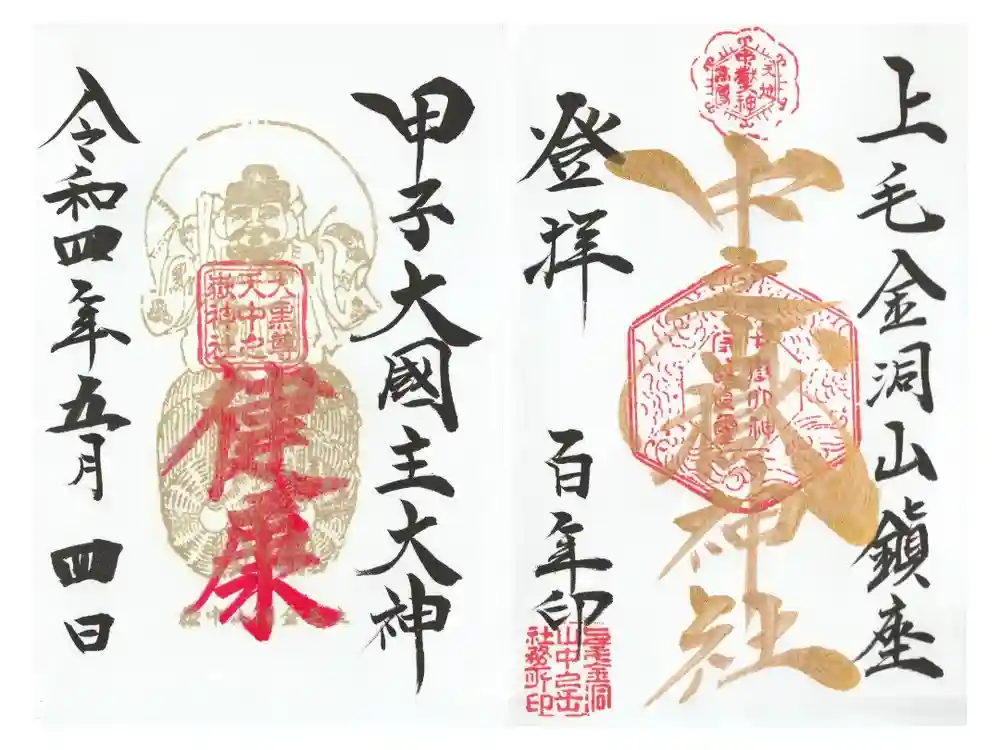 上毛金洞山鎮座
中之嶽神社
登拝 百年印
甲子大國主大神
健康
令和四年五月 四日
大黒尊
天中之
嶽神社
山中之岳
社務所印